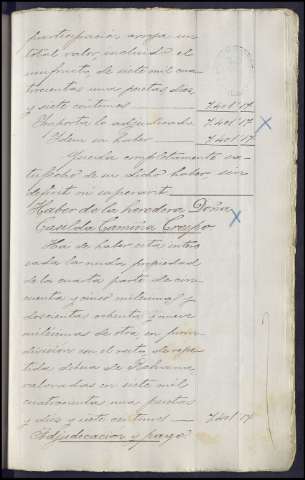 participación arroja un
total valor, incluido el
usufructo, de siete mil cua-
trocientas una pesetas diez
y siete centimos 7401'17
Importa lo adjudicado 7401'17
Idem su haber 7401'17
Queda completamente sa-
tisfecho de su dicho haber, sin
deficit ni superavit
Haber de la heredera Doña
Casilda Camina Crespo
Ha de haber esta intere-
sada la nuda propiedad
de la cuarta parte de cin-
cuenta y cinco milesimas y
doscientas ochenta y nueve
milesimas de otra, en proin-
división con el resto, de repe-
tida dehesa de
valoradas en siete mil
cuatrocientas una pesetas
y diez y siete centimos 7401'17
Adjudicacion y pago